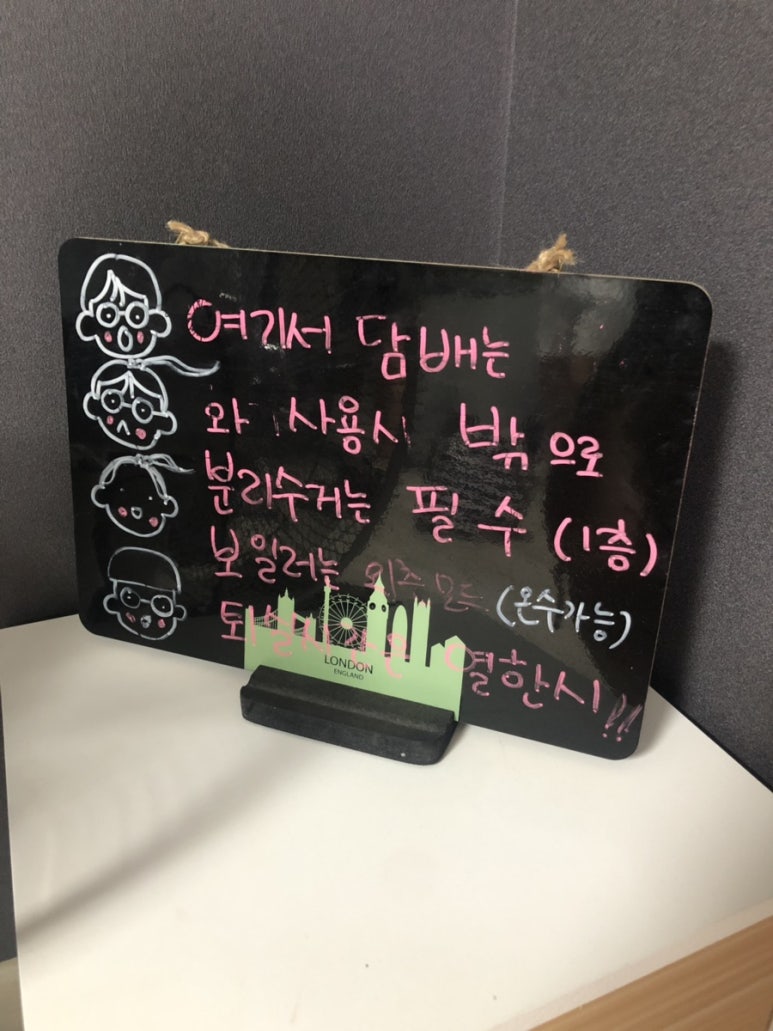 여기서 담배는
사용시 밖으로
분리수거는 필수 (1층)
보일러는 외출 모드 (온수가능)
퇴실시간은 열한시!!
LONDON
ENGLAND